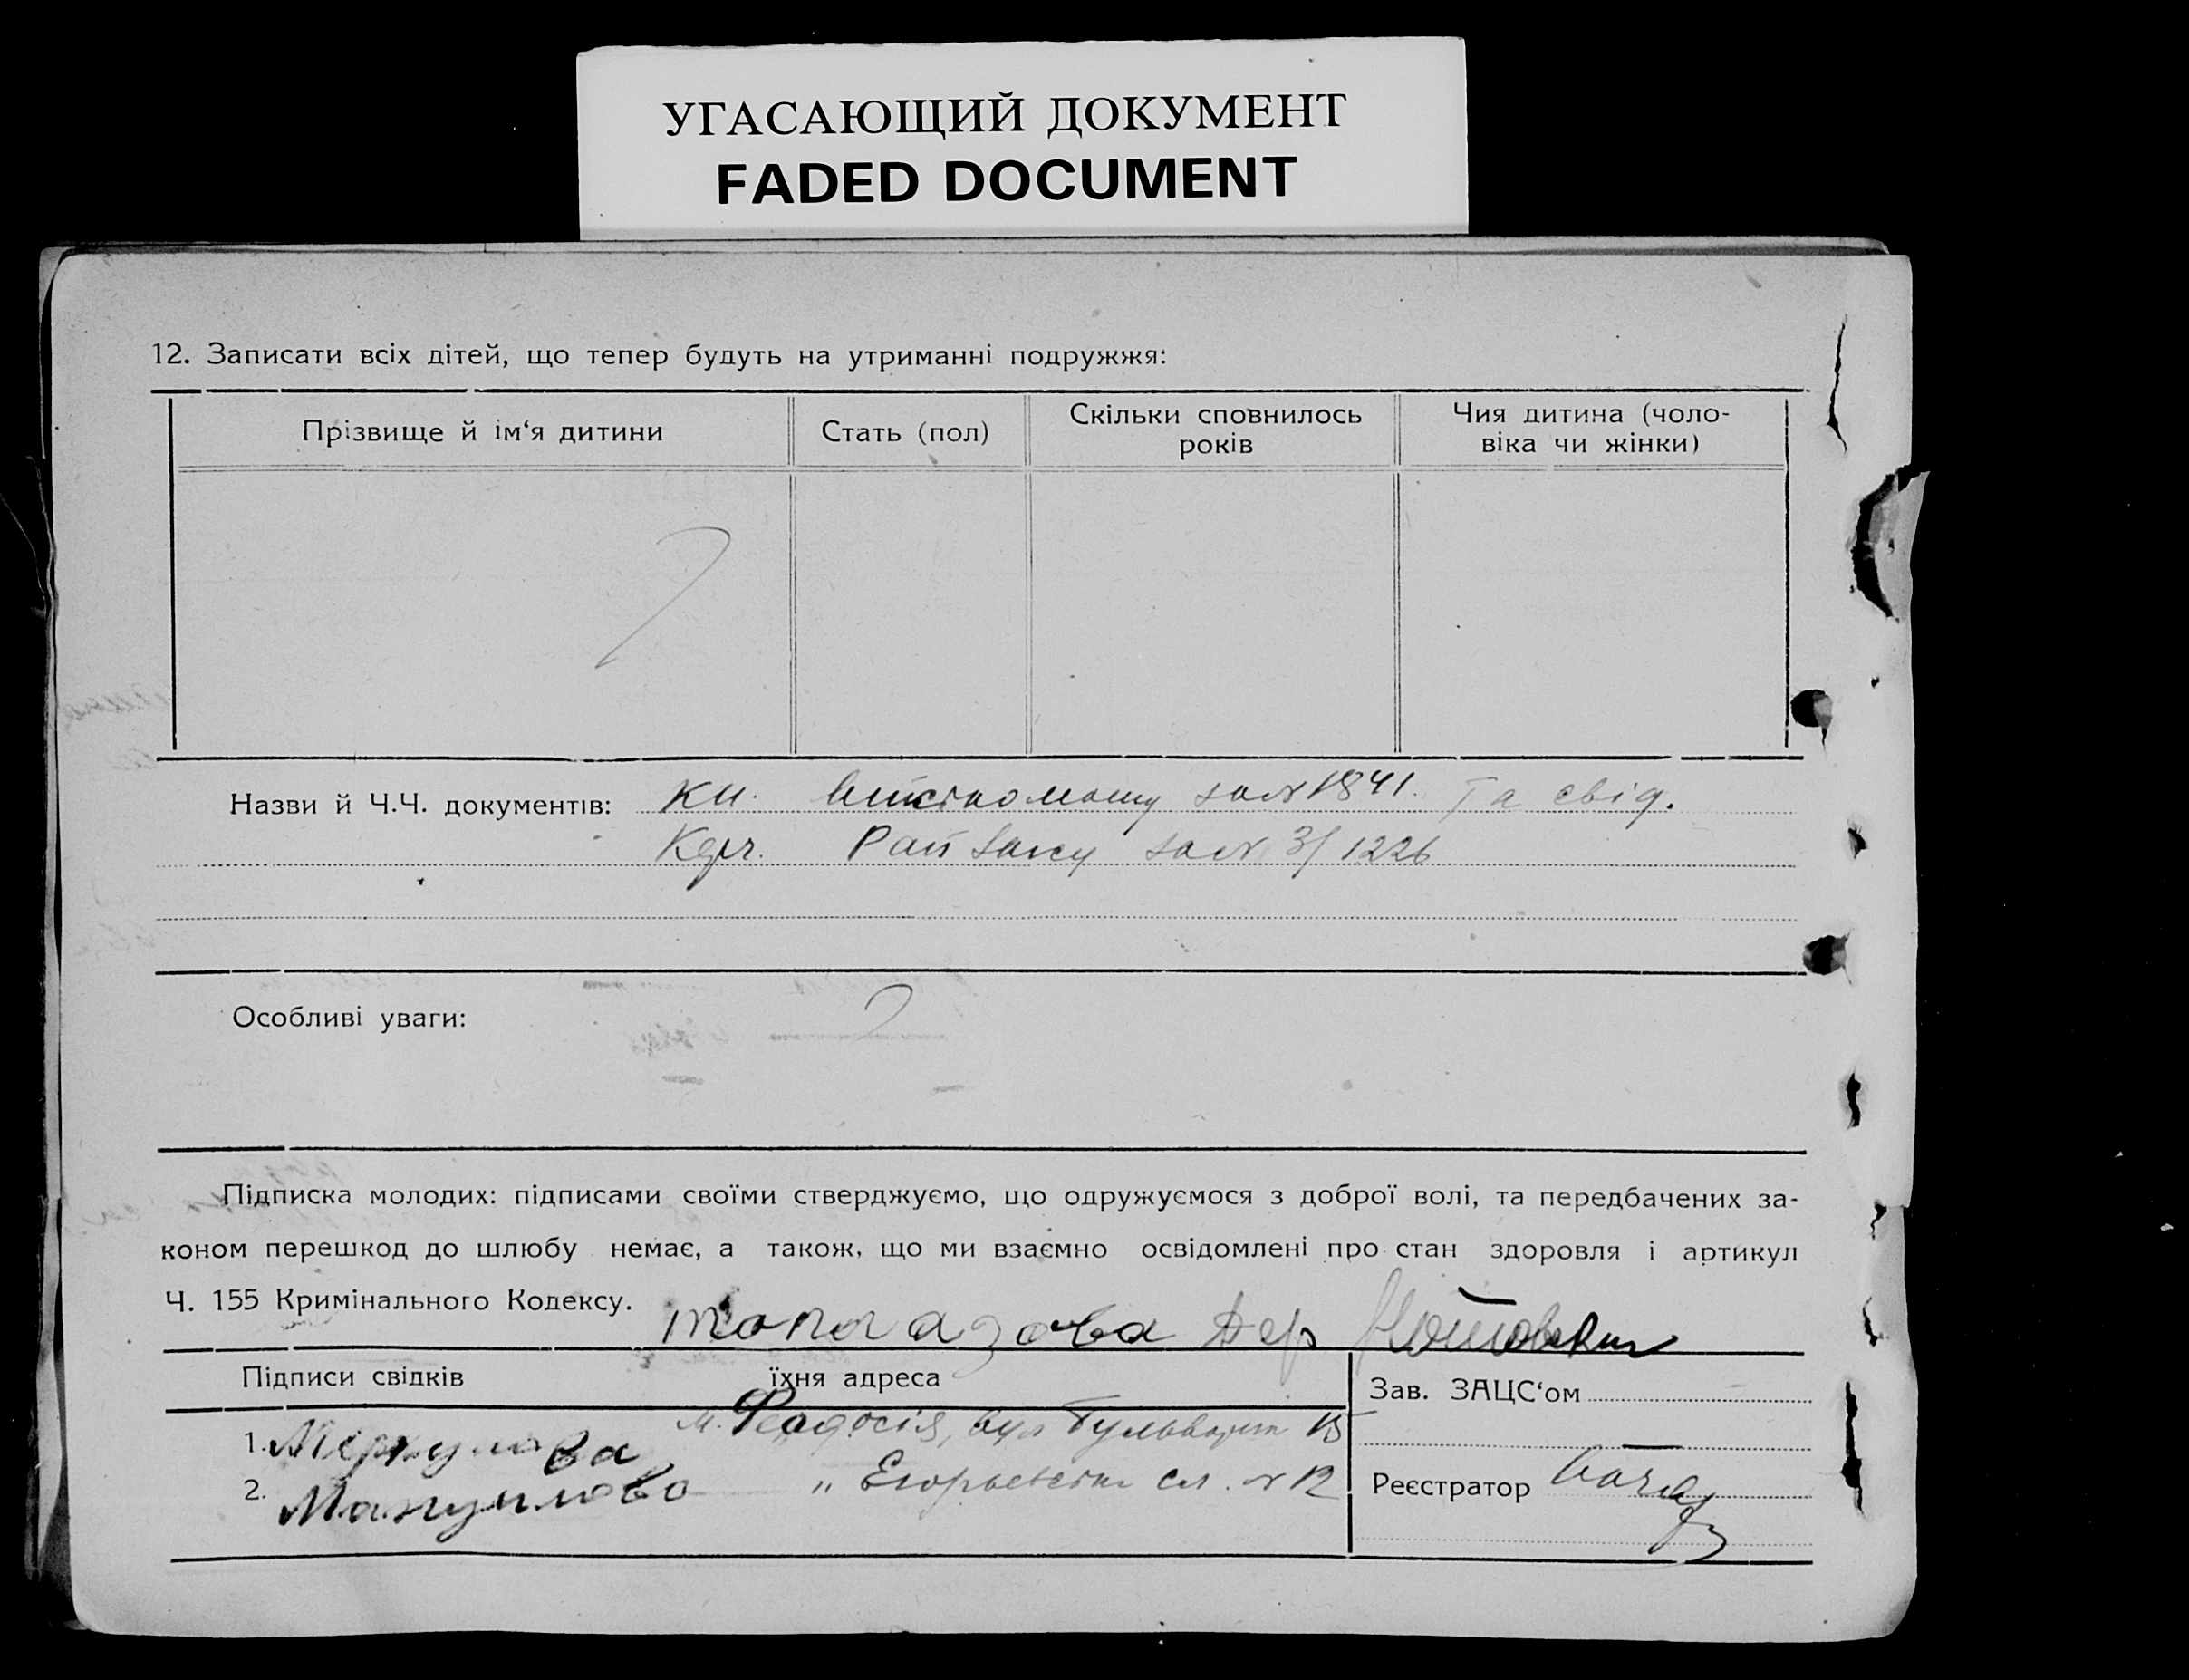 УГАСАЮЩИЙ ДОКУМЕНТ
FADED DOCUMENT
12. Записати всіх дітей, що тепер будуть на утриманні подружжя:
Прізвище й ім‘я дитини
Стать (пол)
Скільки сповнилось
років
Чия дитина (чоло-
віка чи жінки)
Назви й Ч.Ч. документів: Кн. 1841. Та свід.
3/1226
Особливі уваги:
Підписка молодих: підписами своїми стверджуємо, що одружуємося з доброї волі, та передбачених за-
коном перешкод до шлюбу немає, а також, що ми взаємно освідомлені про стан здоровля і артикул
Ч. 155 Кримінального Кодексу.
Підписи свідків
їхня адреса
1. Меркулова м. Феодосія, вул 15
2. „ сл. № 12
Зав. ЗАЦС‘ом
Реєстратор